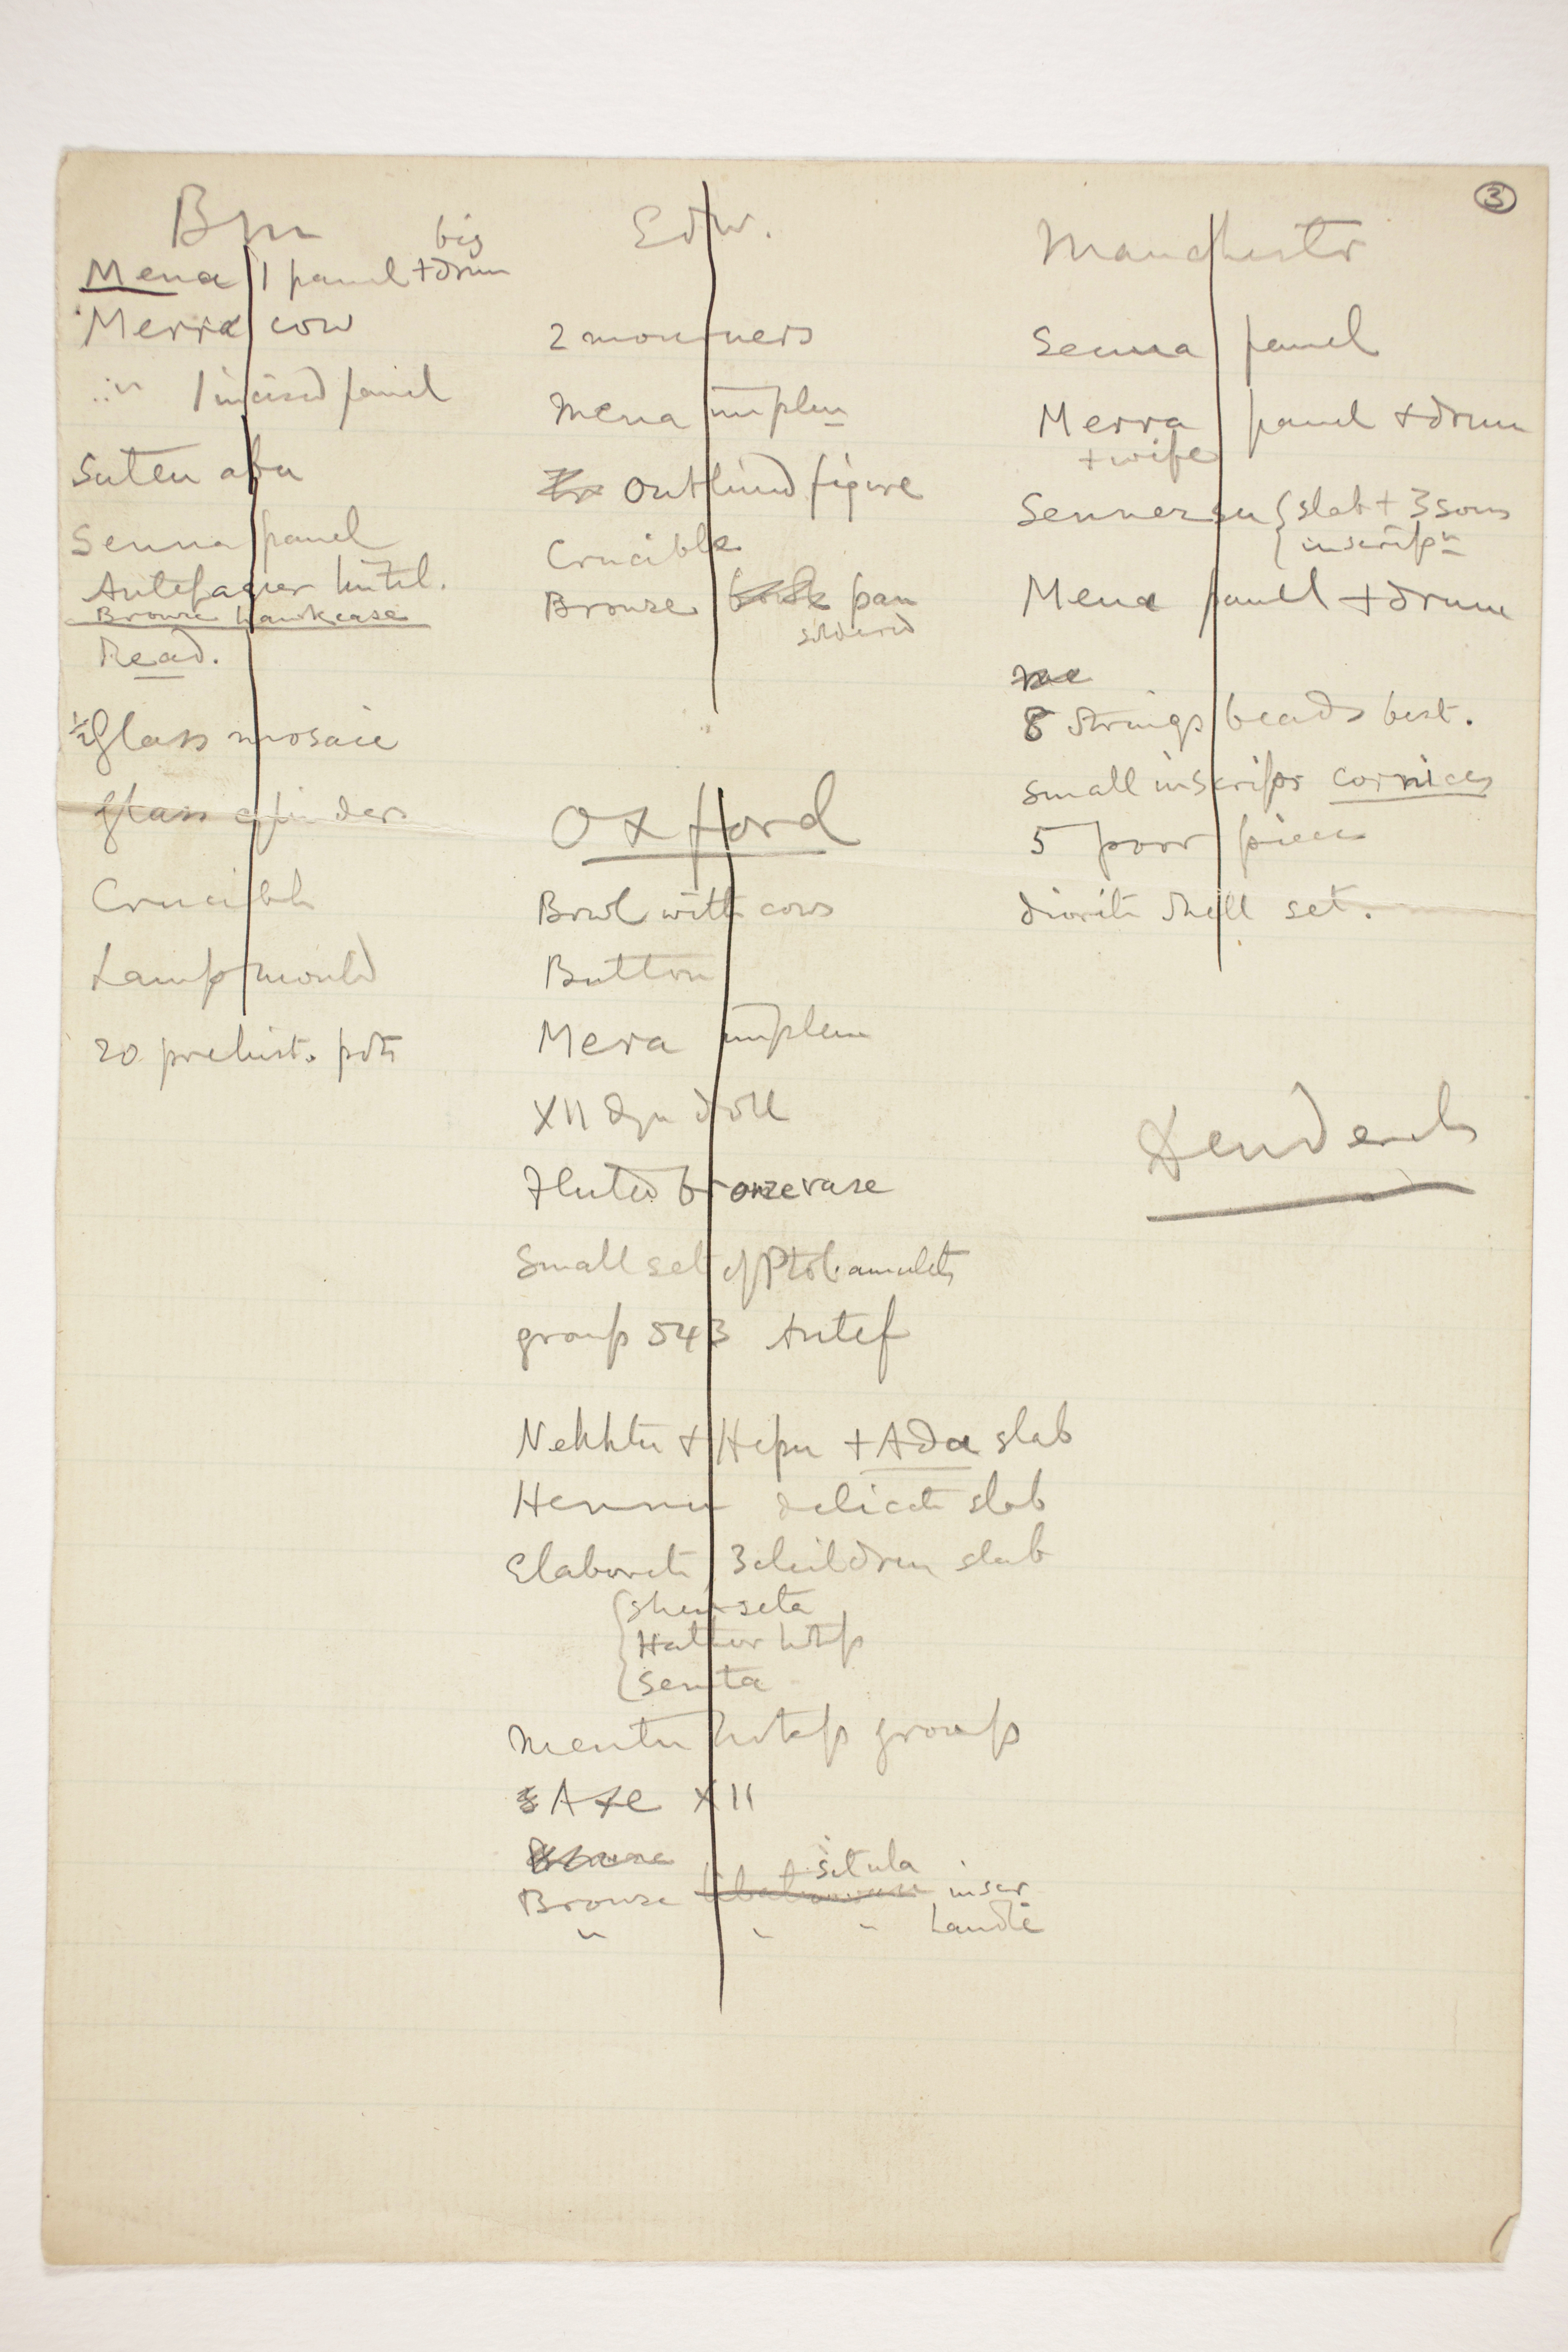 3
Bm
big
Mena 1 panel + drum
Merra cow
" 1 incised panel
Suten abu
Senna panel
Antefaqer lintel.
Bronze hawkcase
Read.
½ Glass mosaic
Glass cylinders
Crucible
Lamp mould
20 prehist. pots
Edw.
2 mourners
Mena implen
Outlined figure
Crucible
Bronze pan
soldered
Oxford
Bowl with cows
Button
Mera implem
XII dyn doll
Fluted bronze vase
Small set of Ptol. amulets
group 543 Antef
Nekhtu + Hepu + Ada slab
Hennu delicate slab
Elaborate 3 children slab
Shen-seta
Hathor hotep
Senta
Mentu hotep group
Axe XII
situla
Bronze inscr
" " " handle
Manchester
Senna panel
Merra panel + drum
+ wife
Sennezsu slab + 3 sons
inscripn
Mena panel + drum
8 strings beads best.
small inscrips cornices
5 poor pieces
diorite shell set.
Dendereh